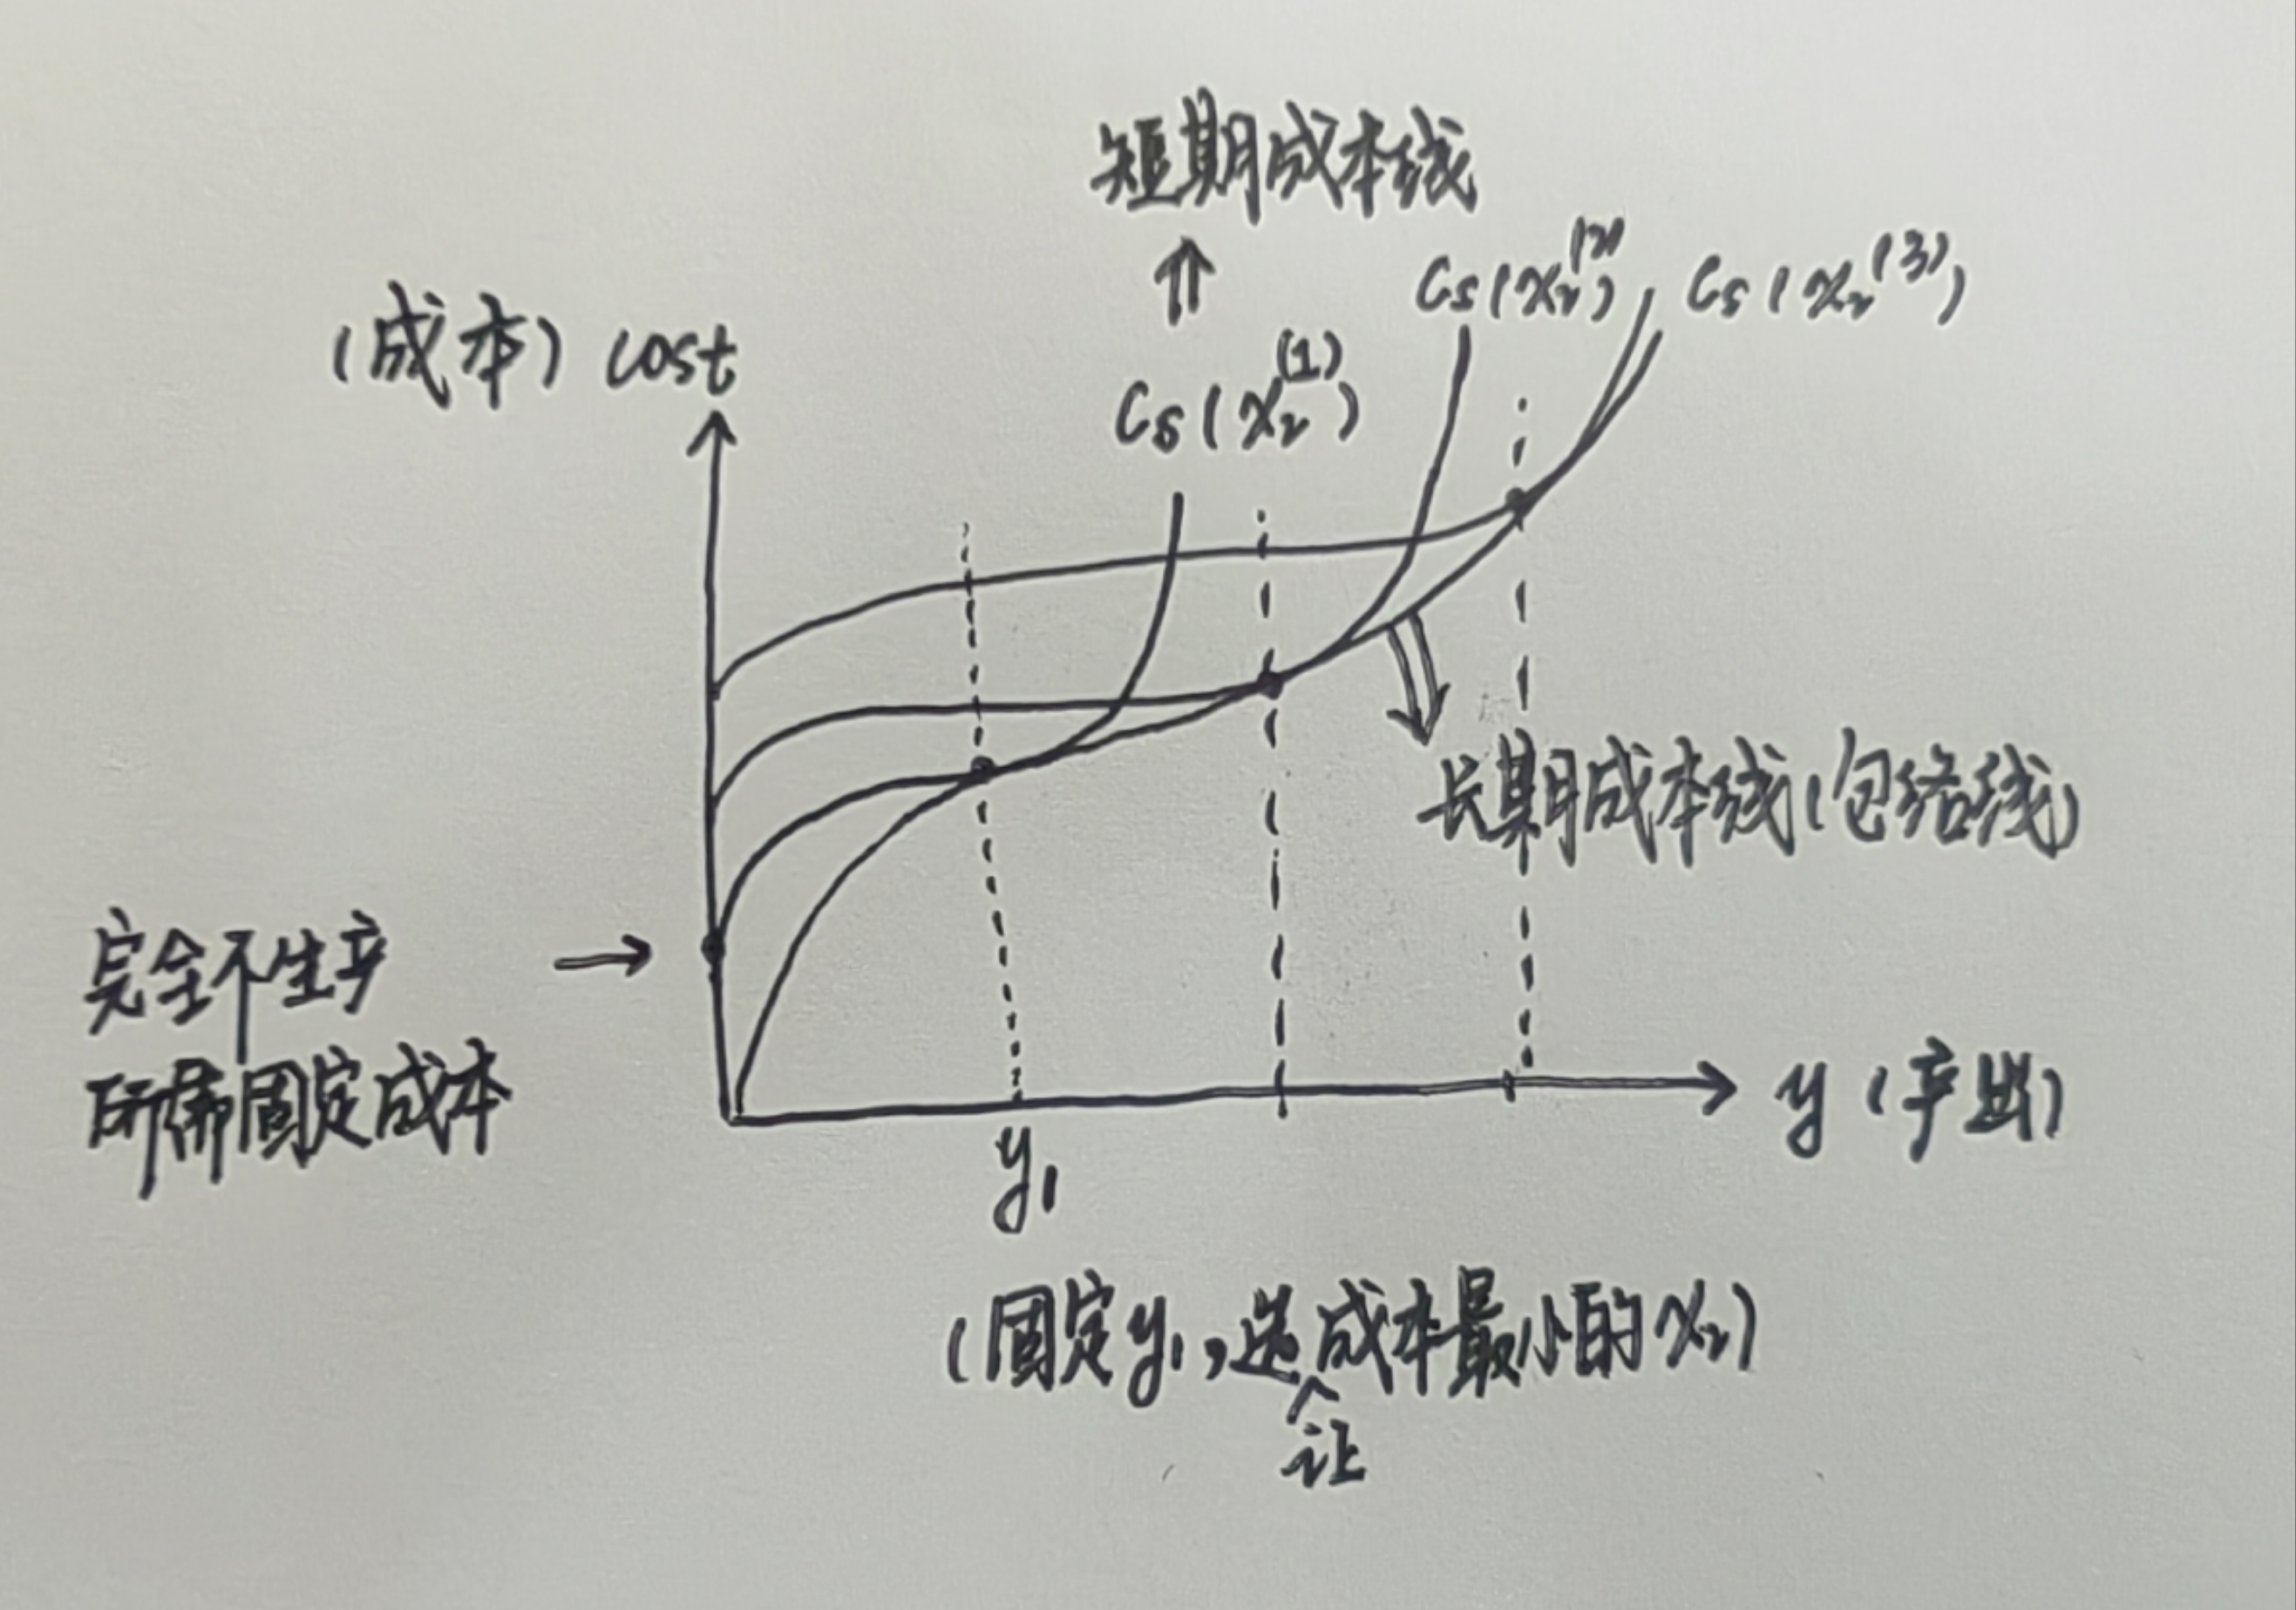 短期成本线
⇑
(成本) cost
Cs(x₂⁽¹⁾)
Cs(x₂⁽²⁾)
Cs(x₂⁽³⁾)
长期成本线(包络线)
完全不生产
所需固定成本
→
y(产出)
y₁
(固定y₁,选成本最小的x₂)
让